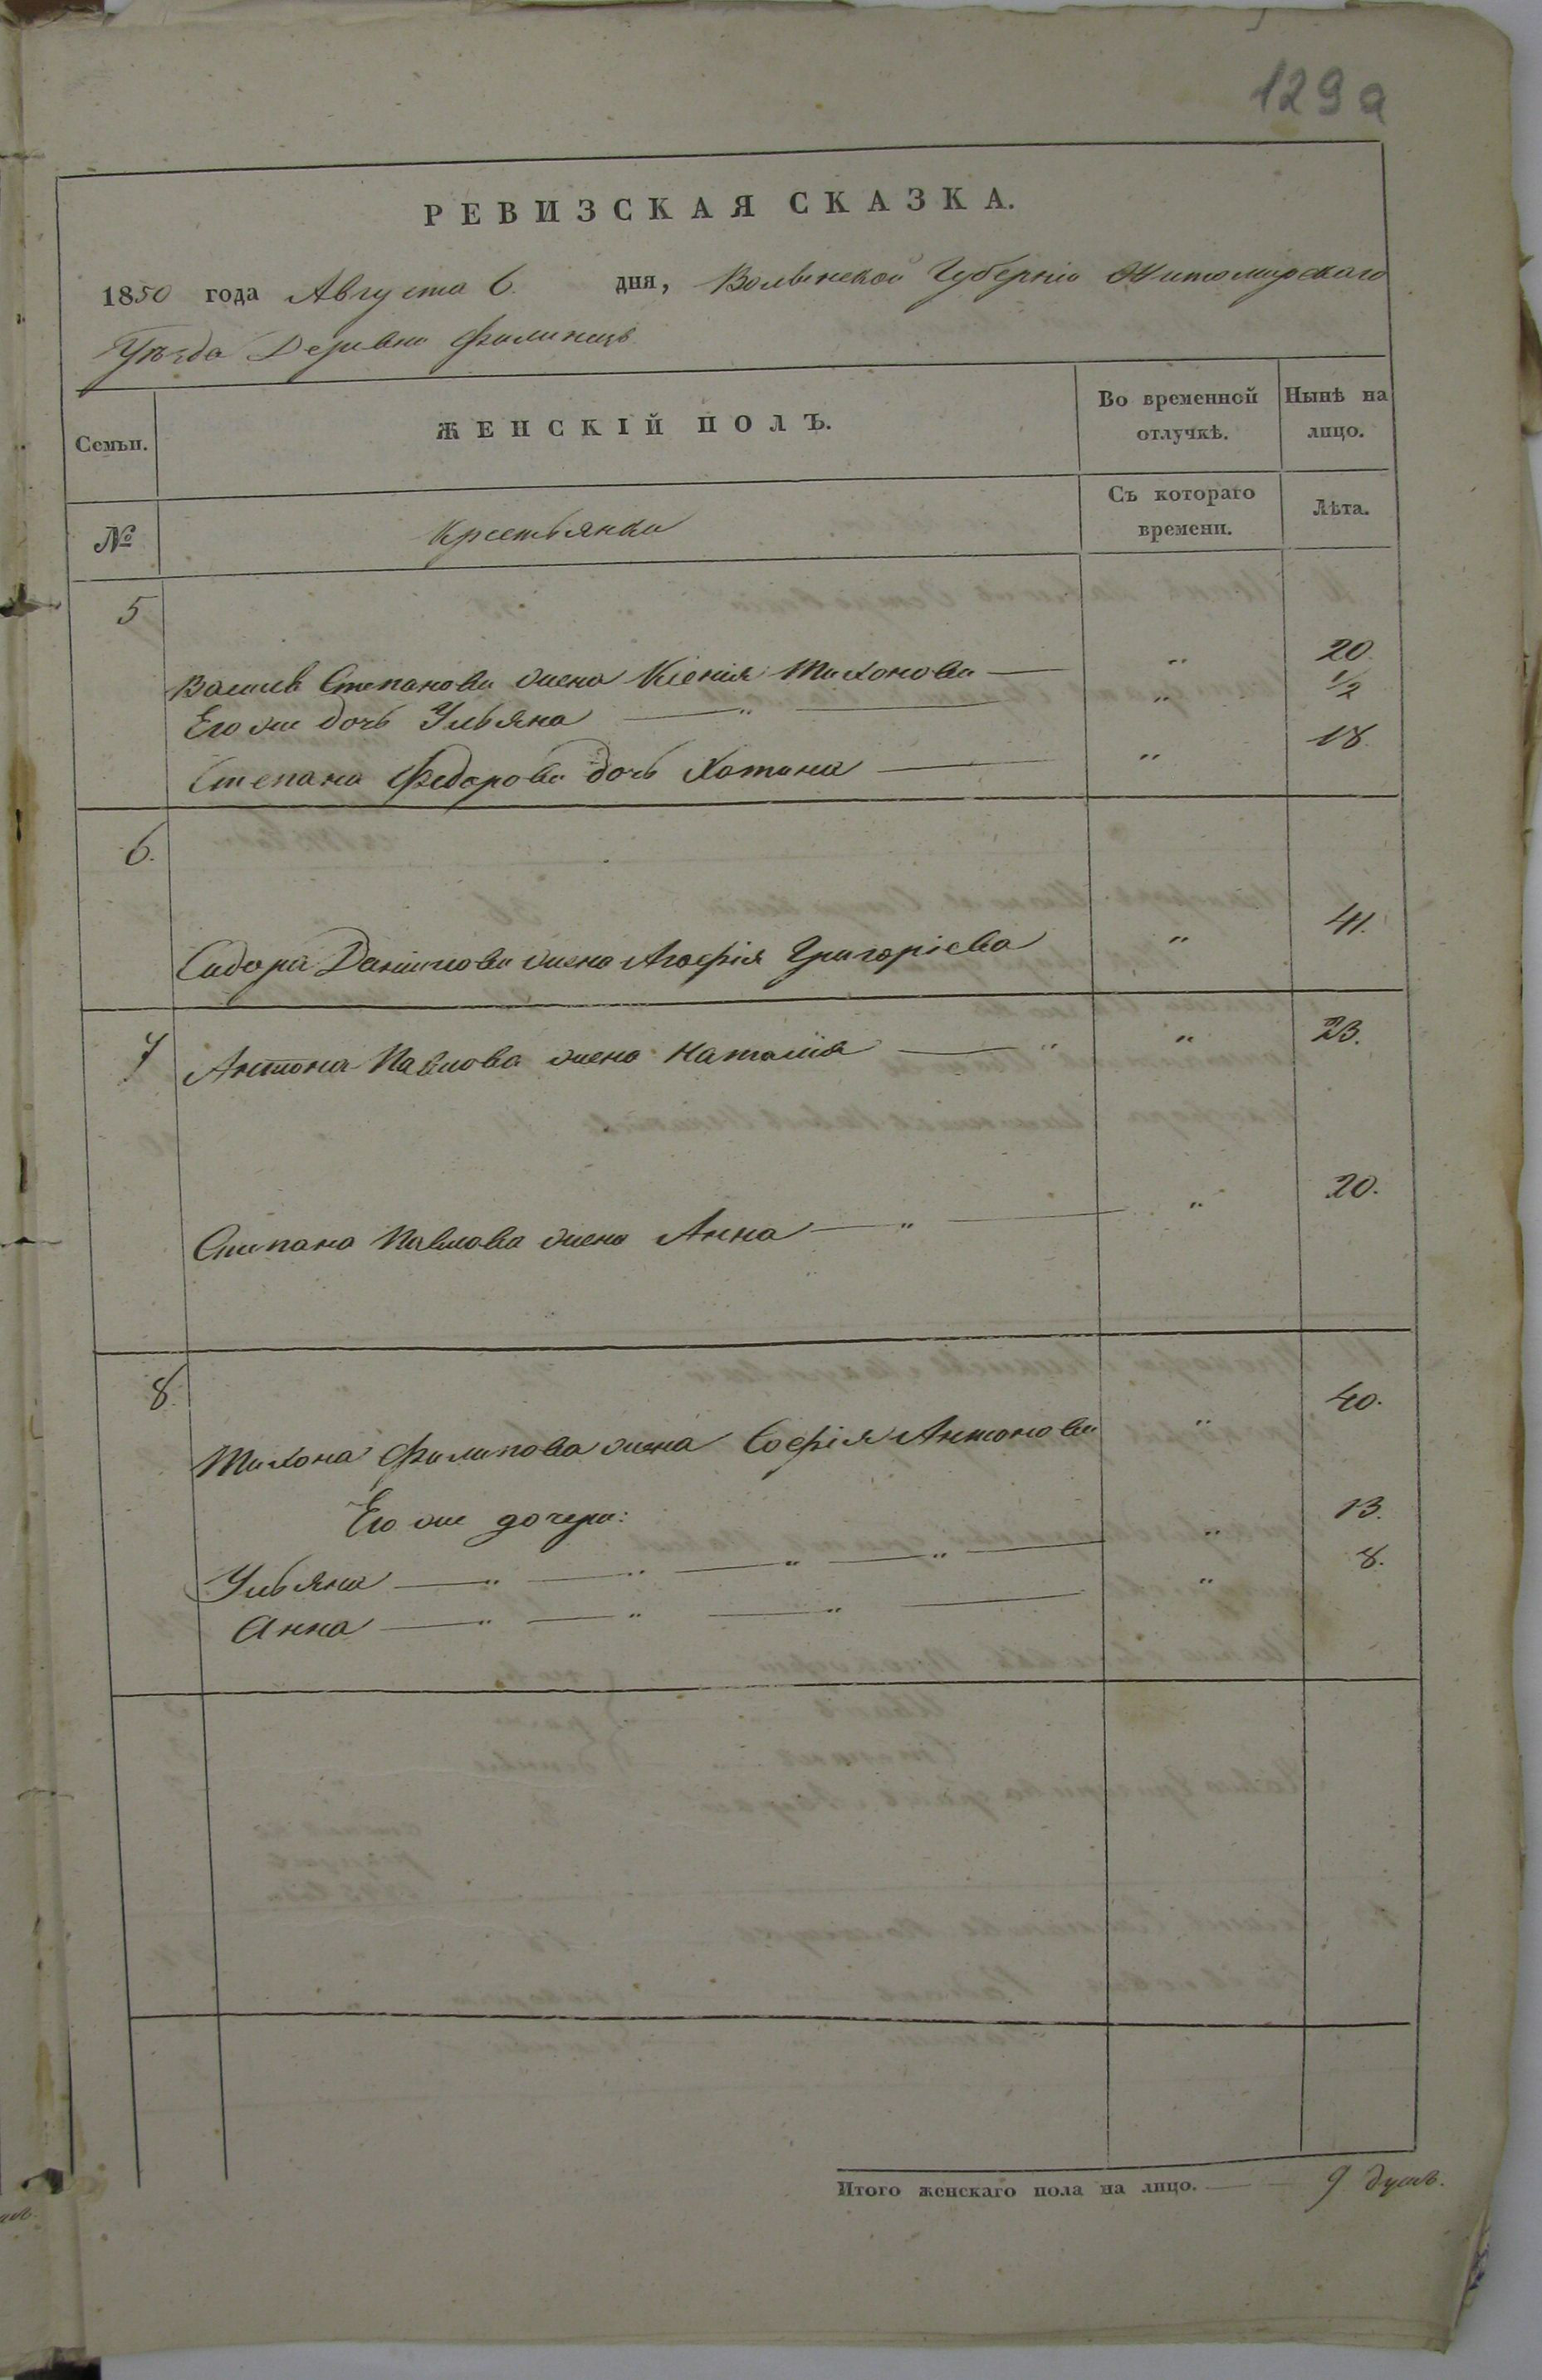 129а
РЕВИЗСКАЯ СКАЗКА.
1850 года Августа 6. дня, Волынской Губерніи Житомирскаго
Уѣзда Деревни Филинецъ
Семьи. ЖЕНСКІЙ ПОЛЪ. Во временной отлучкѣ. Нынѣ на лицо.
№ Крестьянки Съ котораго времени. Лѣта.
5
Василія Степанова жена Ксенія Тихонова — " 20.
Его же дочь Ульяна — " — " 1/2
Степана Федорова дочь Хотина — " 18.
6.
Сидора Данилова жена Агафія Григоріева " 41.
7 Антона Павлова жена Наталія — " " 23.
Степана Павлова жена Анна — " — " 20.
8.
Тихона Филипова жена Софія Антонова " 40.
Его же дочери:
Ульяна — " — " — " — " — " 13.
Анна — " — " — " — " 8.
Итого женскаго пола на лицо. — — 9 душъ.